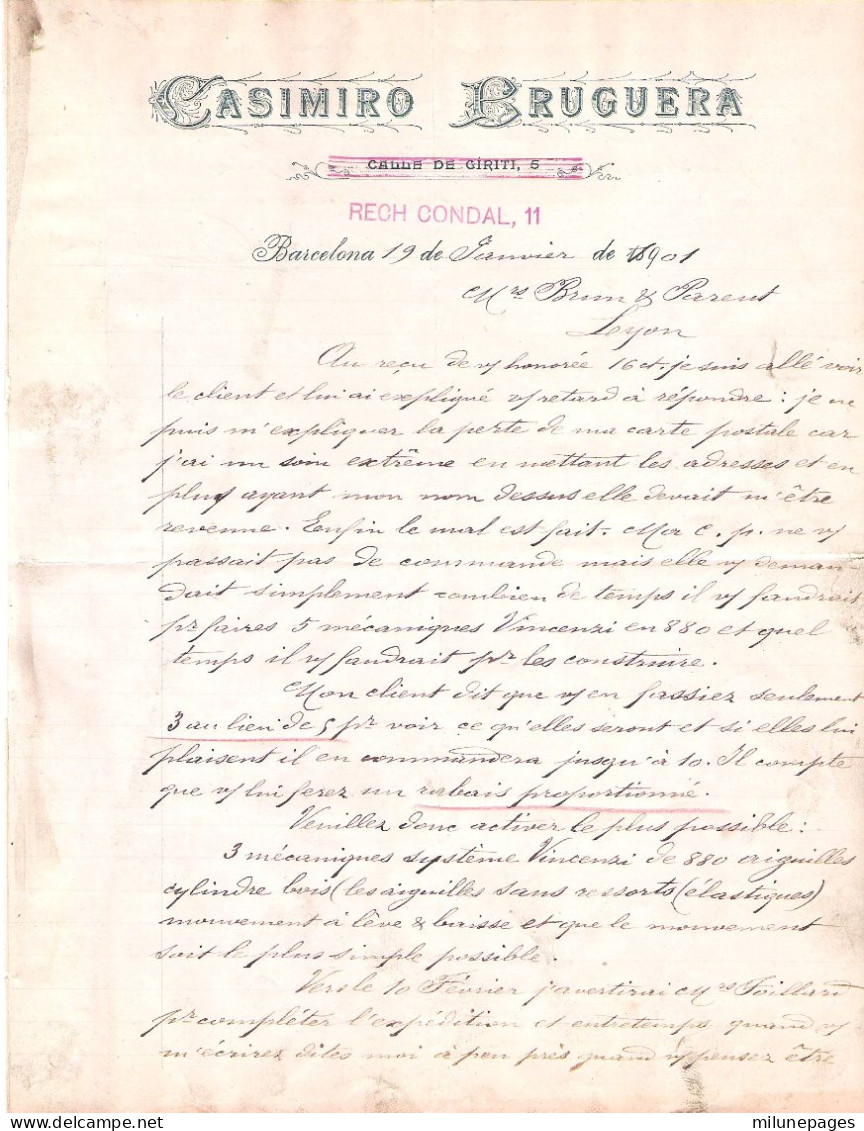 CASIMIRO BRUGUERA
CALLE DE GIRITI, 5
RECH CONDAL, 11
Barcelona 19 de Janvier de 1901
Mrs Brun & Parent
Lyon
Au reçu de v/ honorée 16 ct. je suis allé voir
le client et lui ai expliqué v/ retard à répondre : je ne
puis m'expliquer la perte de ma carte postale car
j'ai un soin extrême en mettant les adresses et en
plus ayant mon nom dessus elle devait m'être
revenue. Enfin le mal est fait. Ma c. p. ne v/
passait pas de commande mais elle v/ deman-
dait simplement combien de temps il v/ faudrait
pr faires 5 mécaniques Vincenzi en 880 et quel
temps il v/ faudrait pr les construire.
Mon client dit que v/ en fassiez seulement
3 au lieu de 5 pr voir ce qu'elles seront et si elles lui
plaisent il en commandera jusqu'à 10. Il compte
que v/ lui ferez un rabais proportionné.
Veuillez donc activer le plus possible :
3 mécaniques système Vincenzi de 880 aiguilles
cylindre bois (les aiguilles sans ressorts (élastiques)
mouvement à lève & baisse et que le mouvement
soit le plus simple possible.
Vers le 10 Février j'avertirai Mrs Foillard
pr compléter l'expédition et entretemps quand v/
m'écrirez dites moi à peu près quand v/ pensez être
delcampe.net
milunepages